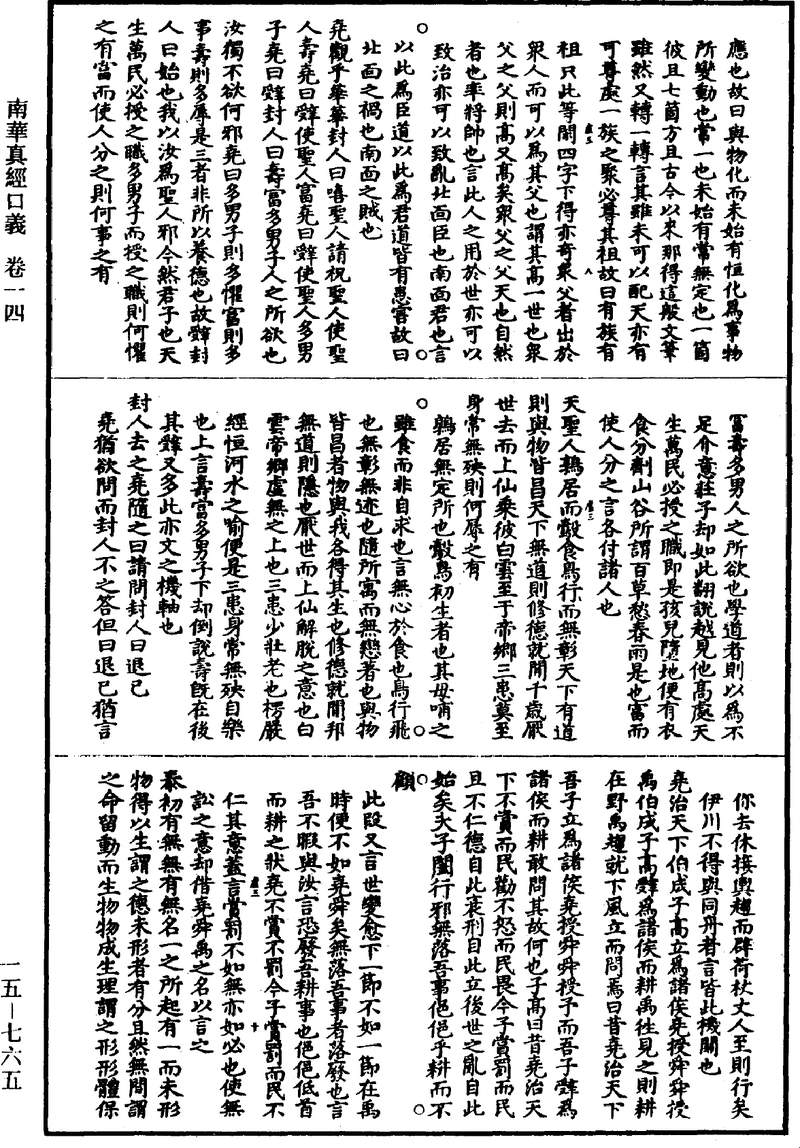 南華真經口義 卷一四
一五—七六五
應也故曰與物化而未始有恒化為事物
所變動也常一也未始有常無定也一箇
彼且七箇方且古今以來那得這般文筆
雖然又轉一轉言其雖未可以配天亦有
可尊處一族之聚必尊其祖故曰有族有
祖只此等閑四字下得亦奇衆父者出於
衆人而可以為其父也謂其高一世也衆
父之父則高又高矣衆父之父天也自然
者也率將帥也言此人之用於世亦可以
致治亦可以致亂北面臣也南面君也言
以此為臣道以此為君道皆有患害故曰
北面之禍也南面之賊也
堯觀乎華華封人曰嘻聖人請祝聖人使聖
人壽堯曰辭使聖人富堯曰辭使聖人多男
子堯曰辭封人曰壽富多男子人之所欲也
汝獨不欲何邪堯曰多男子則多懼富則多
事壽則多辱是三者非所以養德也故辭封
人曰始也我以汝為聖人邪今然君子也天
生萬民必授之職多男子而授之職則何懼
之有富而使人分之則何事之有
冨壽多男人之所欲也學道者則以為不
足介意莊子却如此翻說越見他高處天
生萬民必授之職即是孩兒墮地便有衣
食分劑山谷所謂百草愁春雨是也富而
使人分之言各付諸人也
天聖人鶉居而鷇食鳥行而無彰天下有道
則與物皆昌天下無道則修德就閒千歲厭
世去而上仙乘彼白雲至于帝鄉三患莫至
身常無殃則何辱之有
鶉居無定所也鷇鳥初生者也其母哺之
雖食而非自求也言無心於食也鳥行飛
也無彰無迹也隨所寓而無戀著也與物
皆昌者物與我各得其生也修德就閒邦
無道則隱也厭世而上仙解脫之意也白
雲帝鄉虛無之上也三患少壯老也楞嚴
經恒河水之喻便是三患身常無殃自樂
也上言壽富多男子下却倒說壽旣在後
其辭又多此亦文之機軸也
封人去之堯隨之曰請問封人曰退已
堯猶欲問而封人不之答但曰退已猶言
你去休接輿趨而辟荷杖丈人至則行矣
伊川不得與同舟者言皆此機關也
堯治天下伯成子高立為諸侯堯授舜舜授
禹伯成子高辭為諸侯而耕禹往見之則耕
在野禹趨就下風立而問焉曰昔堯治天下
吾子立為諸侯堯授舜舜授予而吾子辭為
諸侯而耕敢問其故何也子高曰昔堯治天
下不賞而民勸不怒而民畏今子賞罰而民
且不仁德自此衰刑自此立後世之亂自此
始矣夫子闔行邪無落吾事俋俋乎耕而不
顧
此段又言世變愈下一節不如一節在禹
時便不如堯舜矣無落吾事者落廢也言
吾不暇與汝言恐廢吾耕事也俋俋低首
而耕之狀堯不賞不罰今子賞罰而民不
仁其意蓋言賞罰不如無亦如必也使無
訟之意却借堯舜禹之名以言之
泰初有無無有無名一之所起有一而未形
物得以生謂之德未形者有分且然無間謂
之命留動而生物物成生理謂之形形體保